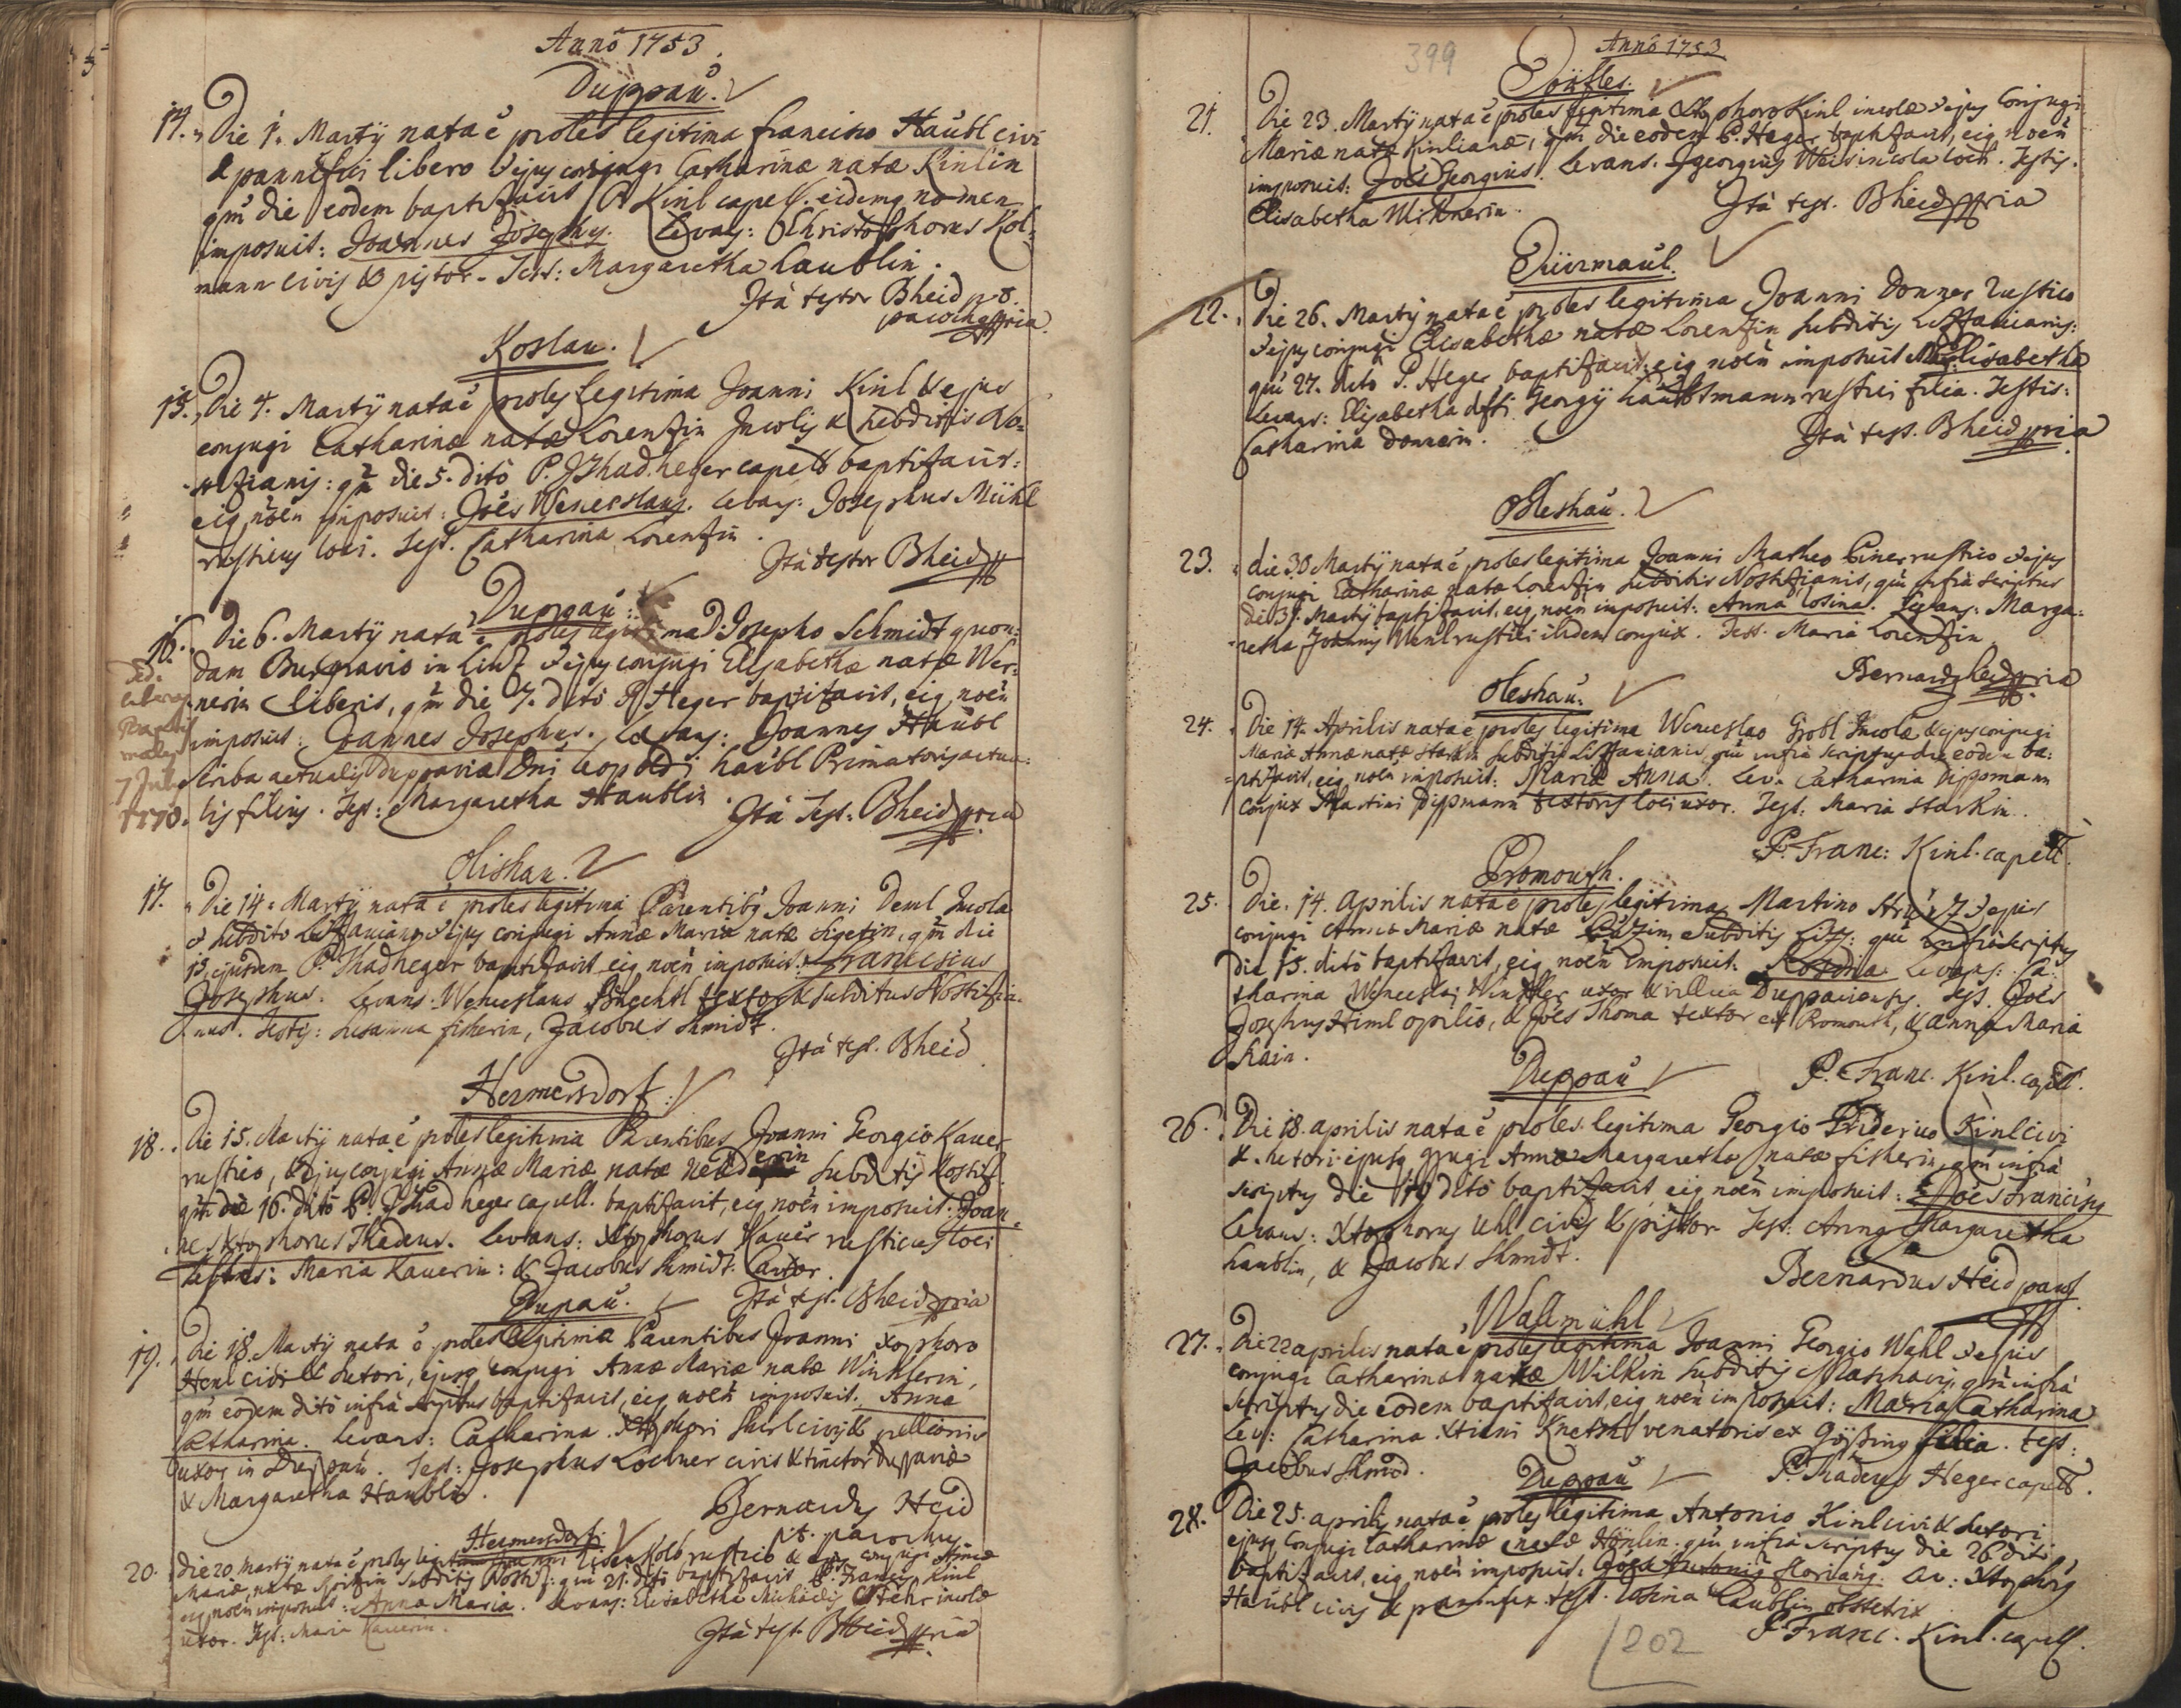 Anno 1753.
Duppau.
14. Die 1. Martÿ nata ē proles legitima Francisco Haübl civi
& pannifici libero & ejus conjugi Catharinæ natæ Kinlin
qm̄ die eodem baptizavit P. Kinl capell. eidemq nomen
imposuit: Joannes Josephus. Levans: Christophorus Kol-
mann civis & pistor. Test: Margaretha Haublin.
Ità testor BHeid p.t.
parochus mpria
Koslau.
15. Die 4. Martÿ nata ē proles legitima Joanni Kinl & ejus
conjugi Catharinæ natæ Lorenzin Incolis & subditis No-
stizianis: qm̄ die 5. ditò P. Thad. Heger capell baptizavit:
eiq noēn imposuit: Joēs Wenceslaus. Levans: Josephus Mühl
rusticus loci. Test. Catharina Lorenzin.
Ità testor BHeid
Duppau.
16. Die 6. Martÿ nata ē proles legitima D: Josepho Schmidt quon-
dam Burgravio in & ejus conjugi Elisabethæ natæ Wer-
nerin liberis, qm̄ die 7. ditò P. Heger baptizavit, eiq noēn
imposuit: Joannes Josephus. Levans: Joannes Haübl
scriba actualis Duppaviæ Dni Leopoldi Haübl Primatoris actua-
lis filius. Test: Margaretha Haublin.
7 Julÿ
1770.
Ità Test: BHeid mpria
Olishau.
17. Die 14. Martÿ nata ē proles legitima Parentibq Joanni Deml Incola
& subdito & ejus conjugi Annæ Mariæ natæ qm̄ die
15. ejusdem P. Thad Heger baptizavit eiq noēn imposuit: Franciscus
Josephus. Levans: Wenceslaus textor & subditus Nostizia-
nus. Testis: Susanna fisherin, Jacobus Shmidt.
Ità test. BHeid
Hermersdorf.
18. Die 15. Martÿ nata ē proles legitima Parentibus Joanni Georgio Kauer
rustico, & ejus conjugi Annæ Mariæ natæ erin subditis Nostiz.
qm̄ die 16. ditò P. Thad Heger capell. baptizavit, eiq noēn imposuit: Joan-
nes Xtophorus Thadeus. Levans: Xtophorus Kauer rusticus loci
testes: Maria Kauerin: & Jacobus Shmidt
Ità test. BHeid mpria
Dupau.
19. Die 18. Martÿ nata ē proles legitima Parentibus Joanni Xtophoro
Henl civi & sutori, ejusq conjugi Annæ Mariæ natæ Winklerin,
qm̄ eodem ditò infrà scriptus baptizavit, eiq noēn imposuit: Anna
Catharina. Levans: Catharina Xtophori civis & pellionis
uxor in Duppau. Test: Josephus Lochner civis & tinctor Duppaviæ
& Margaretha Haublin.
Bernardus Heid
p.t. parochus
Hermersdorf
20. Die 20. Martÿ nata ē proles legitima Kolb rustico & ejus conjugi Annæ
Mariæ natæ subditis Nostiz: qm̄ 21. ditò baptizavit P. Franc. Kinl
eiq noēn imposuit: Anna Maria. Levans: Elisabetha Michaelis Stehr incolæ
uxor. Test: Maria Kauerin.
Ità test. BHeid mpria
399
Anno 1753
21. Die 23. Martÿ nata ē proles legitima Xtophoro Kinl incolæ & ejus Conjugi
Mariæ natæ Kinlianæ, qm̄ die eodem P. Heger baptizavit, eiq noēn
imposuit: Joēs Georgius. Levans. Georgius Weis incola loci. Testis.
Elisabetha
Ità test. BHeid mpria
Dürmaül.
22. Die 26. Martÿ nata ē proles legitima Joanni Donner rustico
& ejus conjugi Elisabethæ natæ Lorenzin subditis
qm̄ 27. ditò P. Heger baptizavit: eiq noēn imposuit M. Elisabetha
Levans: Elisabetha dfti Georgÿ Haubtmann rustici filia. Testis:
Catharina Donnerin.
Ità test. BHeid mpria
Oleshau.
23. die 30 Martÿ nata ē proles legitima Joanni Matheo rustico & ejus
conjugi Catharinæ natæ Lorenzin subditis Nostizianis, qm̄ infrà scriptus
die 31. Martÿ baptizavit, eiq noēn imposuit: Anna Rosina. Levans: Marga-
retha rustici ibidem conjux. Test. Maria Lorenzin
Bernardq Heid mpria
Oleshau.
24. Die 14. Aprilis nata ē proles legitima Wenceslao Grobl Incolæ & ejus conjugi
Mariæ Annæ natæ Starkin subditis qm̄ infrà scriptus die eodem ba-
ptizavit, eiq noēn imposuit: Maria Anna. Lev. Catharina Dippmann
conjux Martini Dippmann textoris loci uxor. Test: Maria Starkin.
P. Franc: Kinl. capell.
Promouth.
25. Die. 14. Aprilis nata ē proles legitima Martino & ejus
conjugi Annæ Mariæ natæ subditis qm̄ infrà scriptus
die 15. ditò baptizavit, eiq noēn imposuit: Levans: Ca-
tharina Wenceslai Winkler uxor & villica Duppaviensis. Test. Joēs
Josephus Himl opilio, & Joēs Thoma textor ex Promouth, & Anna Maria
Duppau
P. Franc. Kinl. capell.
26. Die 18. aprilis nata ē proles legitima Georgio Friderico Kinl civi
& sutori ejusq conjugi Annæ Margarethæ natæ fisherin, qm̄ infrà
scriptus die 19 ditò baptizavit eiq noēn imposuit: Joēs Franciscq
Levans: Xtophorus Uhl civis & pistor Test: Anna Margaretha
Haublin, & Jacobus Shmidt.
Bernardus Heid paro
Wallmühl
27. Die 22 aprilis nata ē proles legitima Joanni Georgio Wahl & ejus
conjugi Catharinæ natæ Wilkin subditis qm̄ infrà
scriptus die eodem baptizavit, eiq noēn imposuit: Maria Catharina
Lev: Catharina Xtiani venatoris ex filia. Test:
Jacobus Shmid.
P. Thadeus Heger capell.
Duppau
28. Die 25. aprilis nata ē proles legitima Antonio Kinl civi & sutori
ejusq conjugi Catharinæ natæ qm̄ infrà scriptus die 26 ditò
baptizavit, eiq noēn imposuit: Joēs Antonius Florianq. Lev: Xtophorq
Haübl civis & pannifex. Test. Rosina Haublin obstetrix
P Franc. Kinl. capell.
202